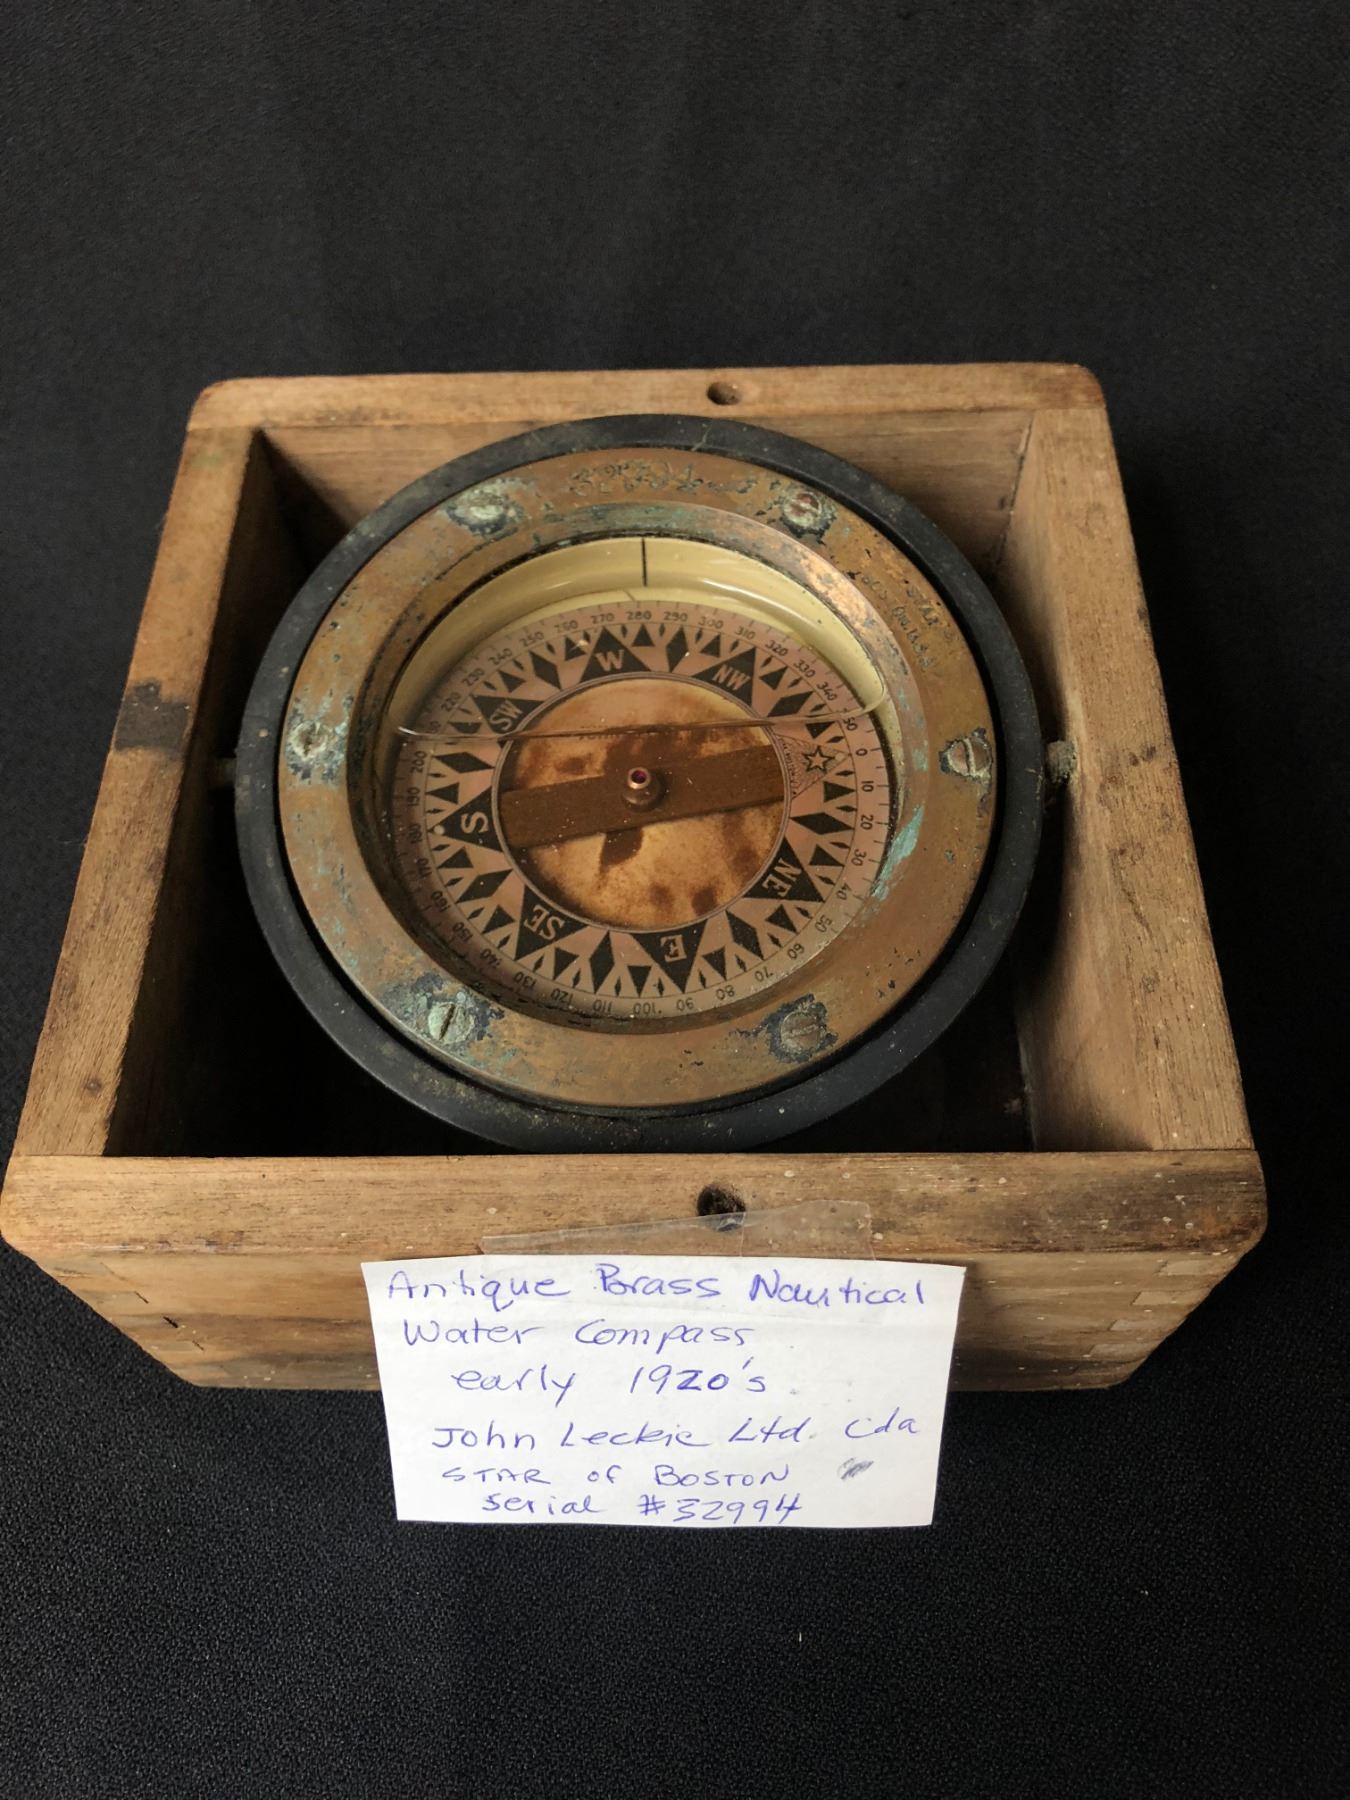 W
NW
SW
S
NE
SE
E
270 280 290 300 310 320 330 340
260 250 240 230 220
0 10 20 30 40 50 60 70 80 90 100 110 120 130 140 150 160 170 180 190 200
Antique Brass Nautical
Water Compass
early 1920's
John Leckie Ltd. Cda
STAR of BOSTON
serial #32994